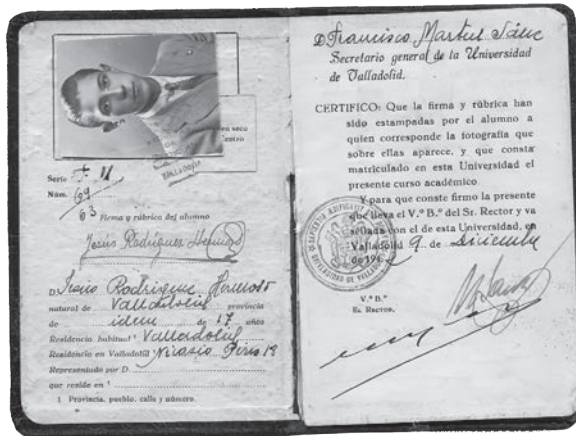 en seco
Centro
VALLADOLID
Serie F. U
Núm. 69
63 Firma y rúbrica del alumno
Jesús Rodríguez Hermoso
D. Jesús Rodríguez Hermoso
natural de Valladolid provincia
de idem de 17 años
Residencia habitual ¹ Valladolid
Residencia en Valladolid Nicasio Pérez 12
Representado por D.
que reside en ¹
1 Provincia, pueblo, calle y número.
D. Francisco Martín Sáenz
Secretario general de la Universidad
de Valladolid.
CERTIFICO: Que la firma y rúbrica han
sido estampadas por el alumno a
quien corresponde la fotografía que
sobre ellas aparece, y que consta
matriculado en esta Universidad el
presente curso académico.
Y para que conste firmo la presente
que lleva el V.º B.º del Sr. Rector y va
sellada con el de esta Universidad, en
Valladolid 9 de Diciembre
de 194
V.º B.º
EL RECTOR,